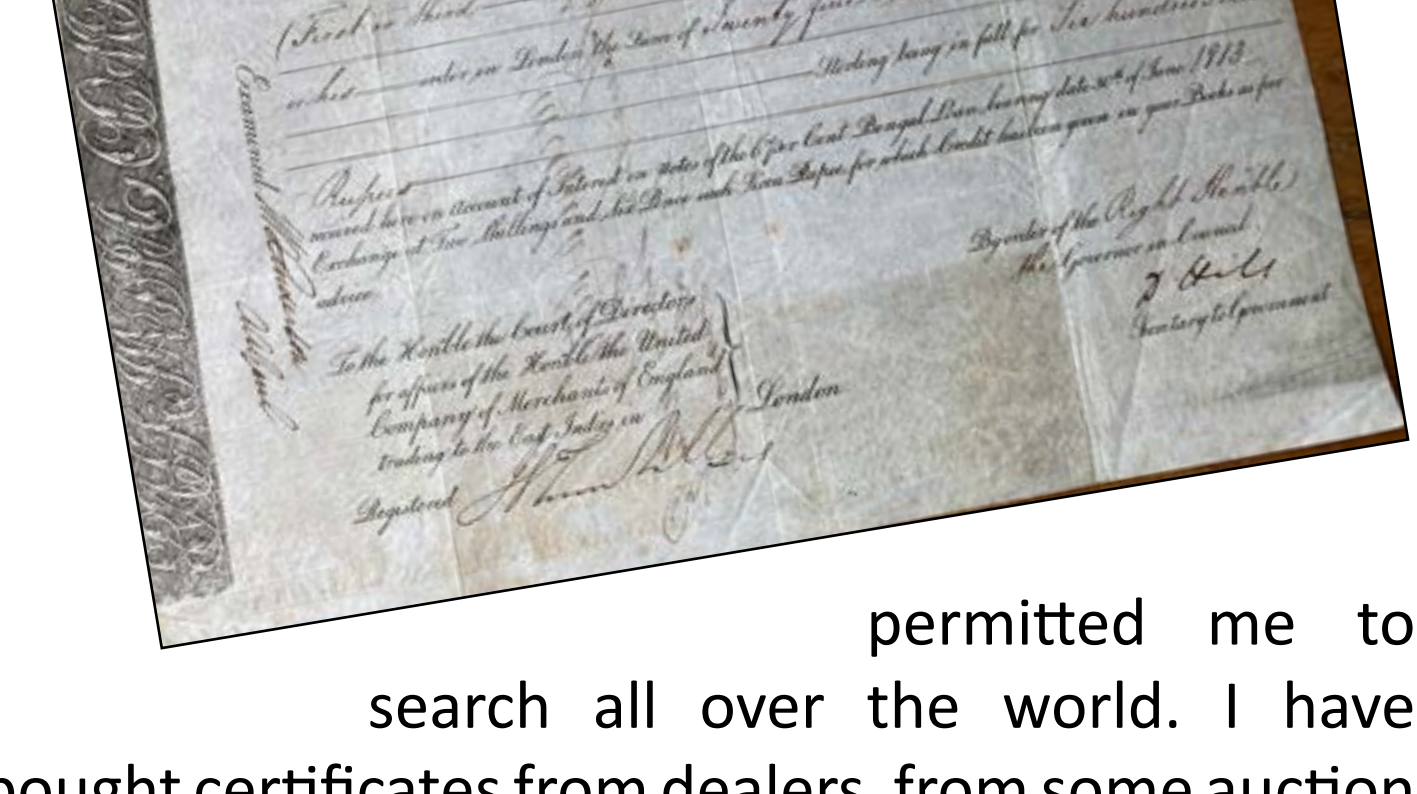 (First
order on London the Sum of Twenty five
Sterling being in full for Six hundred
Rupees
received here on Account of Interest on Notes of the 6 per Cent Bengal Loan, bearing date 30th of June 1813
Exchange at Two Shillings and Six Pence each Sicca Rupee for which Credit has been given in your Books as per
advice
Examined
By order of the Right Honble
the Governor in Council
Secretary to Government
To the Honble the Court of Directors
for affairs of the Honble the United
Company of Merchants of England
trading to the East Indies in
London
Registered
permitted me to
search all over the world. I have
bought certificates from dealers, from some auction